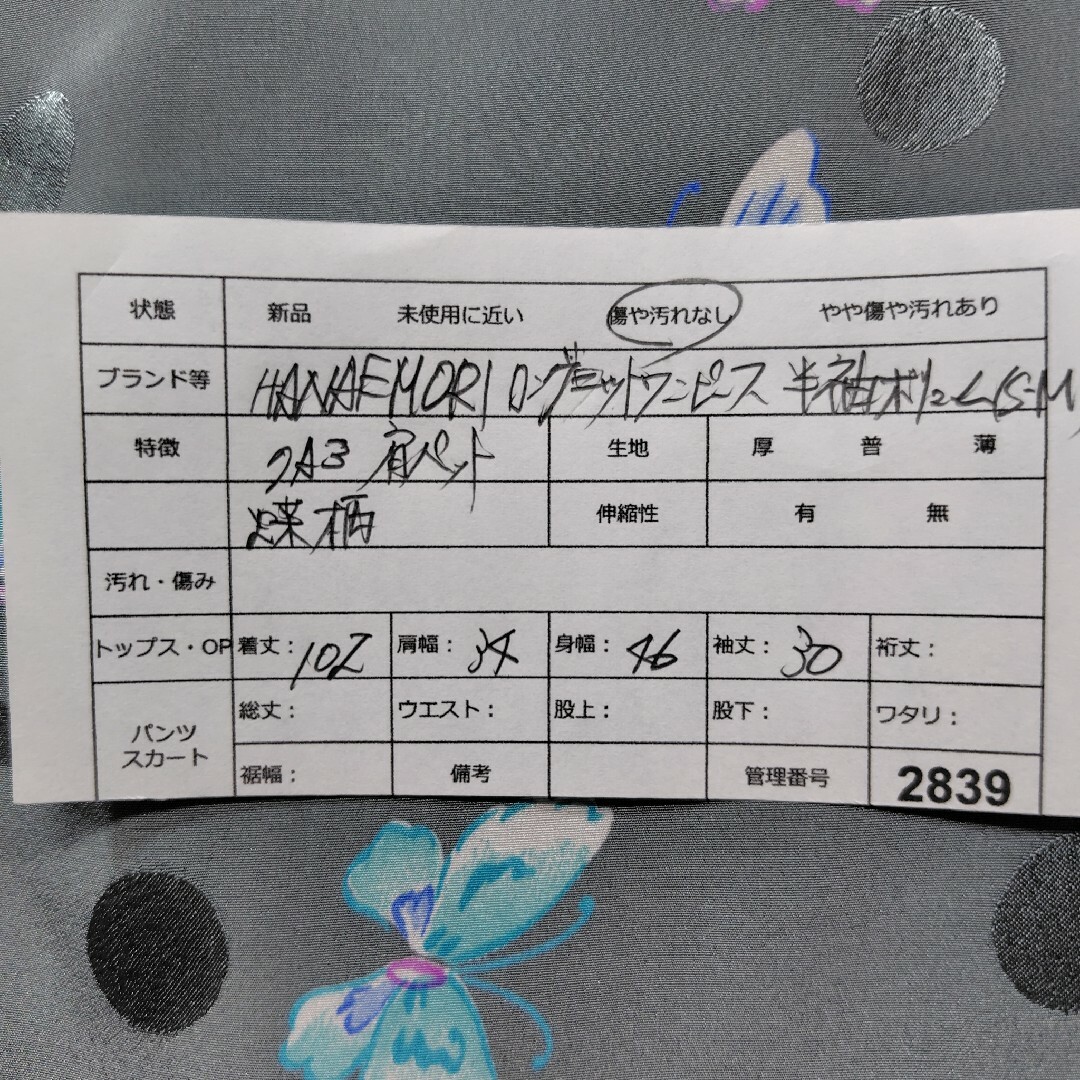 状態 新品 未使用に近い 傷や汚れなし やや傷や汚れあり
ブランド等 HANAEMORI ロング ドットワンピース 半袖 S-M
特徴 肩パット 生地 厚 普 薄
蝶柄 伸縮性 有 無
汚れ・傷み
トップス・OP 着丈: 102 肩幅: 34 身幅: 46 袖丈: 30 裄丈:
パンツ スカート 総丈: ウエスト: 股上: 股下: ワタリ:
裾幅: 備考 管理番号 2839